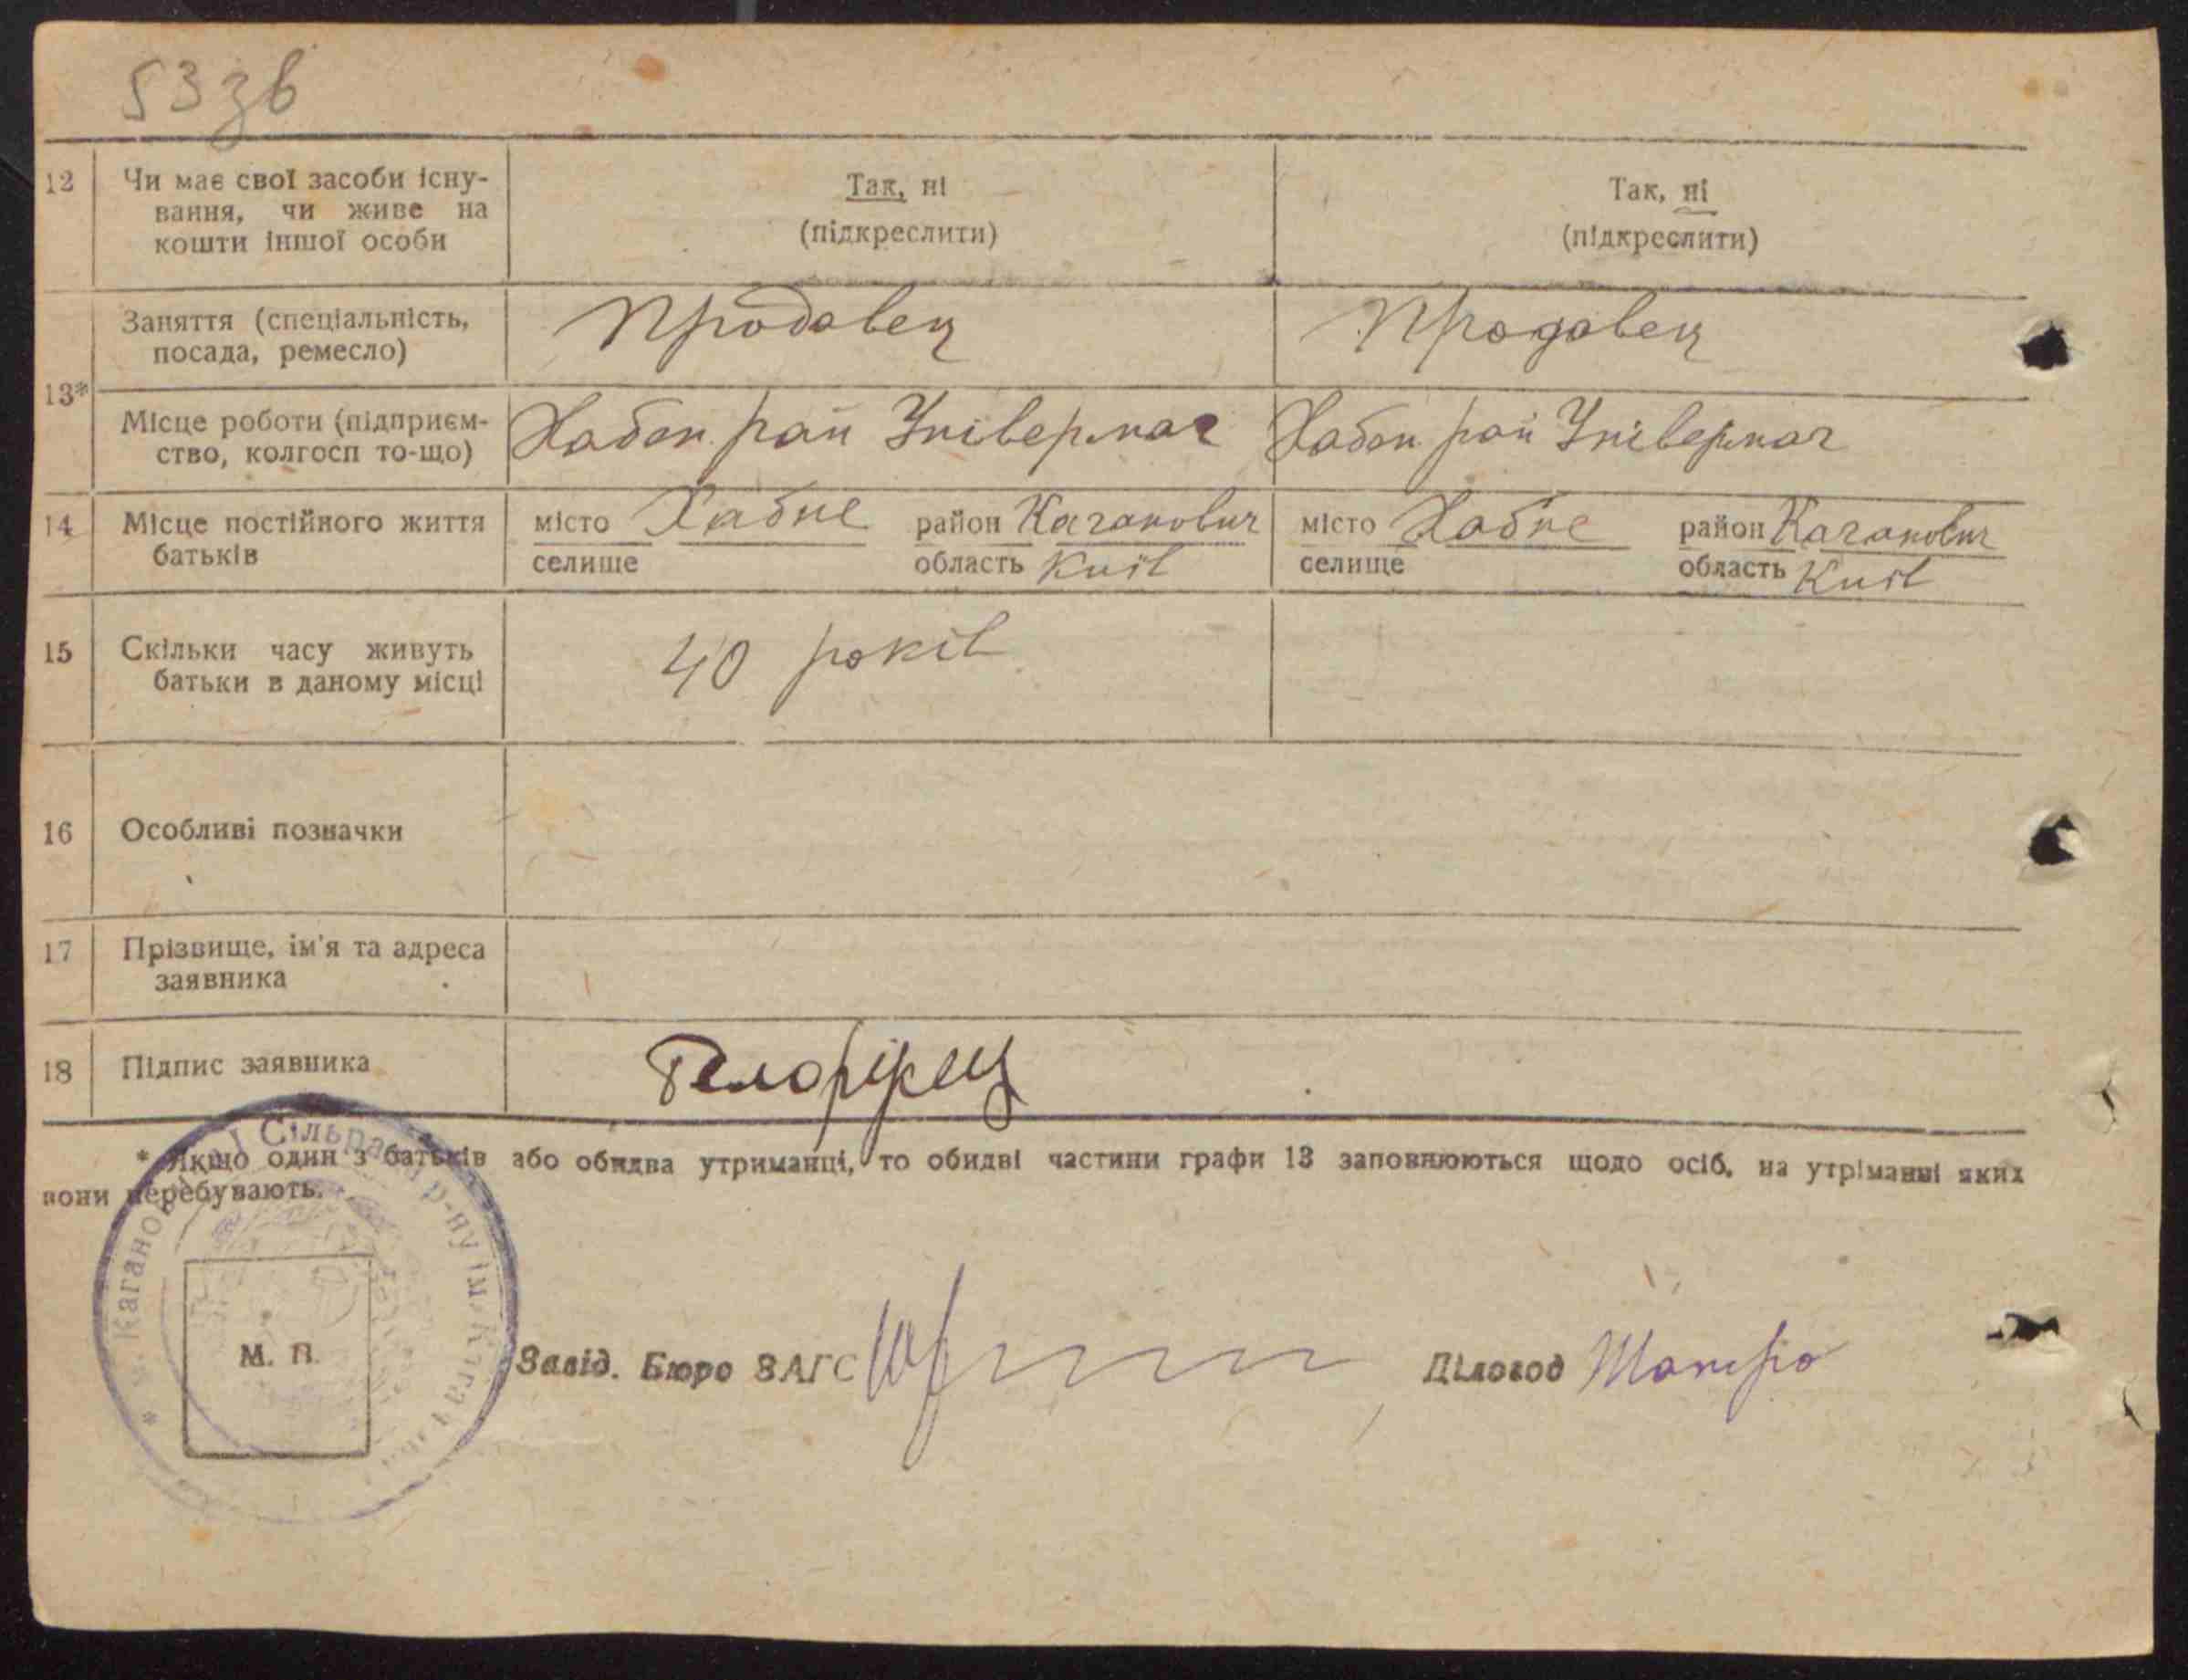 53зв
12 Чи має свої засоби існу-
вання, чи живе на
кошти іншої особи
Так, ні
(підкреслити)
Так, ні
(підкреслити)
13*
Заняття (спеціальність,
посада, ремесло)
Продавец
Продавец
Місце роботи (підприєм-
ство, колгосп то-що)
Хабен рай Універмаг
Хабен рай Універмаг
14 Місце постійного життя
батьків
місто Хабне район Каганович
селище область Київ
місто Хабне район Каганович
селище область Київ
15 Скільки часу живуть
батьки в даному місці
40 років
16 Особливі позначки
17 Прізвище, ім'я та адреса
заявника
18 Підпис заявника
* Якщо один з батьків або обидва утриманці, то обидві частини графи 13 заповнюються щодо осіб, на утріманні яких
вони перебувають.
Сільрада р-ну ім.
М. П.
Завід. Бюро ЗАГС
Діловод Шапиро